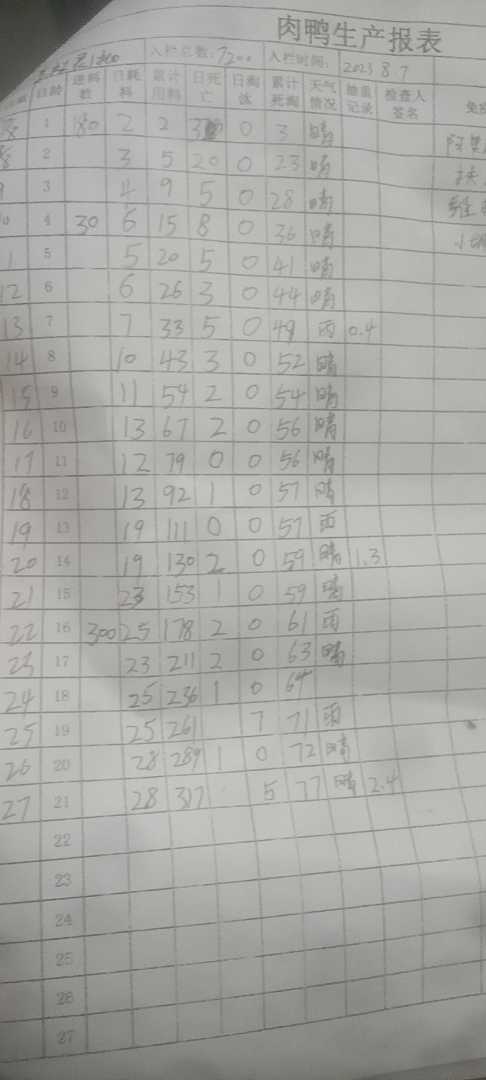 肉鸭生产报表
入栏总数: 7200 入栏时间: 2023 8 7
日龄 进料数 日耗料 累计用料 日死亡 日淘汰 累计死淘 天气情况 体重记录 检查人签名
8 1 80 2 2 3 0 3 晴
2 3 5 20 0 23 晴
9 3 4 9 5 0 28 晴
10 4 30 6 15 8 0 36 晴
11 5 5 20 5 0 41 晴
12 6 6 26 3 0 44 晴
13 7 7 33 5 0 49 雨 0.4
14 8 10 43 3 0 52 晴
15 9 11 54 2 0 54 晴
16 10 13 67 2 0 56 晴
17 11 12 79 0 0 56 晴
18 12 13 92 1 0 57 晴
19 13 19 111 0 0 57 雨
20 14 19 130 2 0 59 晴 1.3
21 15 23 153 1 0 59 晴
22 16 300 25 178 2 0 61 雨
23 17 23 211 2 0 63 晴
24 18 25 236 1 0 64
25 19 25 261 7 71 雨
26 20 28 289 1 0 72 晴
27 21 28 317 5 77 晴 2.4
22
23
24
25
26
27